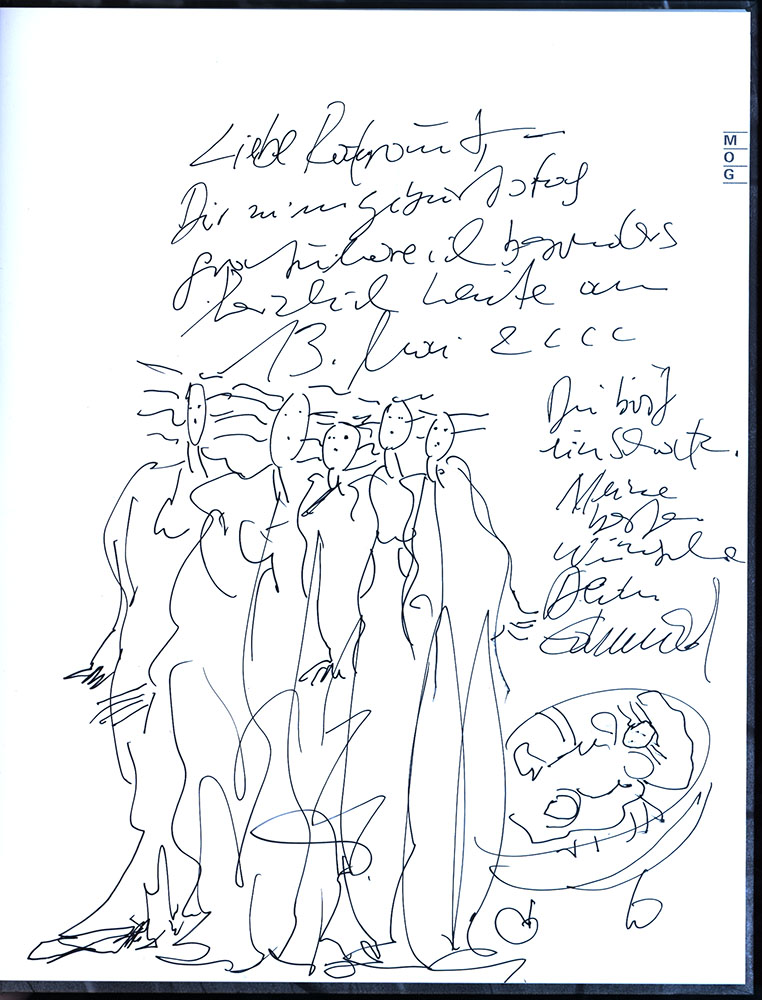 Liebe
Dir zum geburtstag
gratuliere ich besonders
herzlich heute am
13. Mai 2000
Du bist
ein Schatz.
Meine
besten
Wünsche
Dein
M
O
G